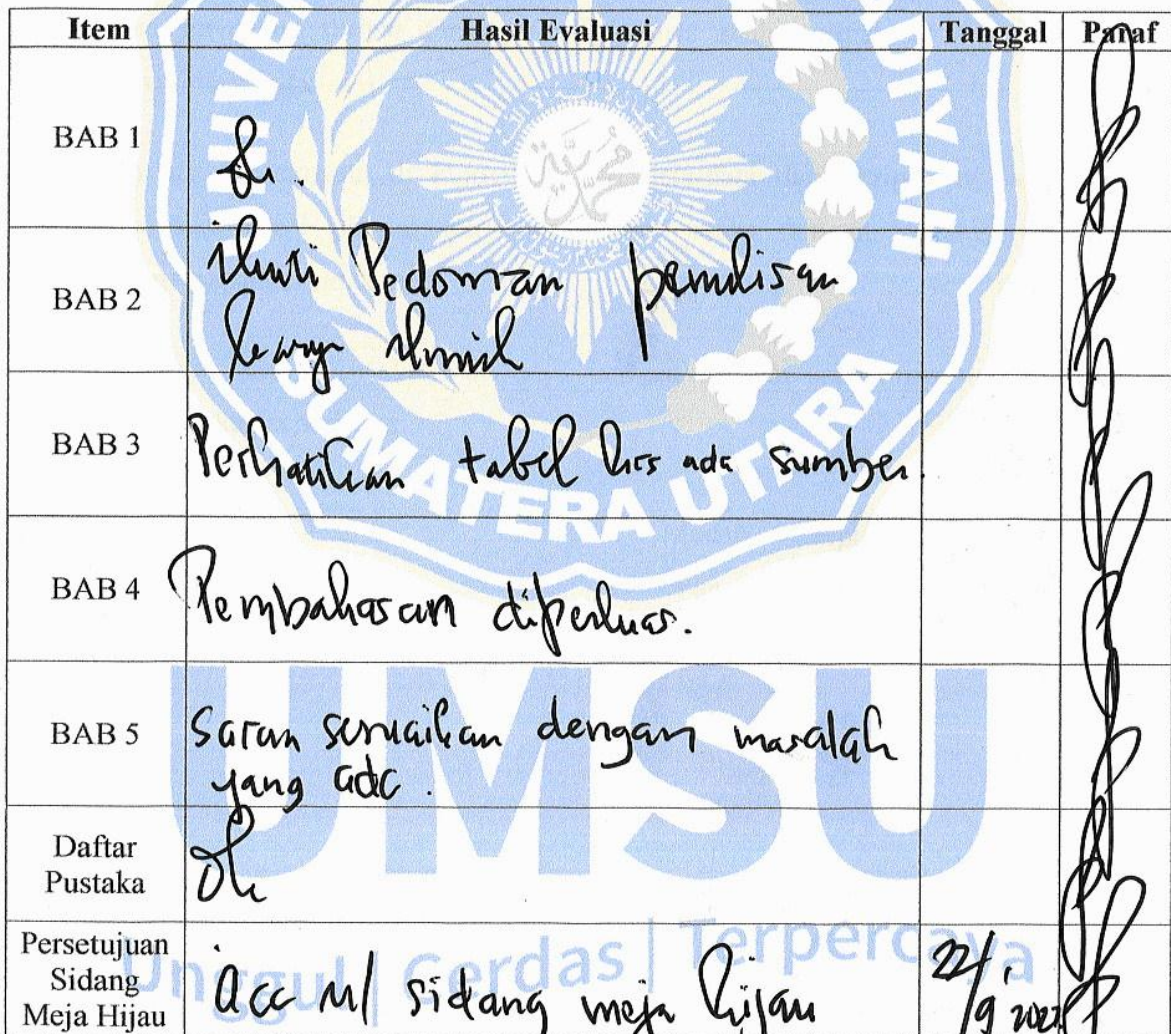 Item Hasil Evaluasi Tanggal Paraf
BAB 1 Ok.
BAB 2 ikuti Pedoman penulisan
karya ilmiah
BAB 3 Perhatikan tabel hrs ada sumber.
BAB 4 Pembahasan diperluas.
BAB 5 Saran sesuaikan dengan masalah
yang ada.
Daftar
Pustaka Ok
Persetujuan
Sidang
Meja Hijau acc u/ sidang meja hijau 22/9
SUMATERA UTARA
UMSU
Unggul | Cerdas | Terpercaya